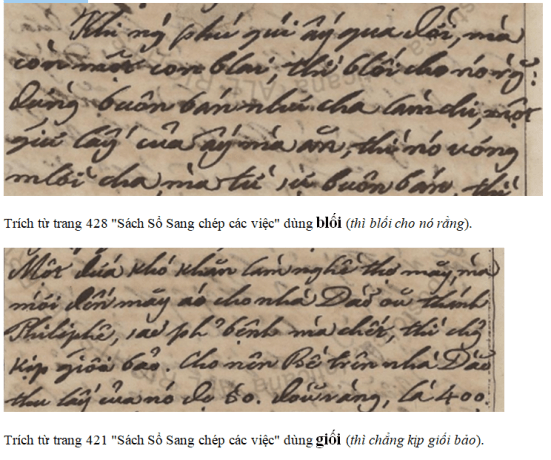 Khi ng᷃ phú quí ấy qua đời, mà
còn một con blai, thì blối cho nó ᷃ng:
đừng buôn bán như cha làm chi, một
giữ lấy của ấy mà ăn, thì nó vâng
mlời cha, mà từ sự buôn bán, thì
Trích từ trang 428 "Sách Sổ Sang chép các việc" dùng blối (thì blối cho nó rằng).
Một đứa khó khăn làm nghề thợ mãy, mà
mới đến mãy áo cho nhà Dào oũ thánh
Philiphê, sao phải bệnh mà chết, thì chẳng
kịp giối bảo. Cho nên Bề trên nhà Dào
thu lấy của nó để 60. đoũ vàng, là 400.
Trích từ trang 421 "Sách Sổ Sang chép các việc" dùng giối (thì chẳng kịp giối bảo).